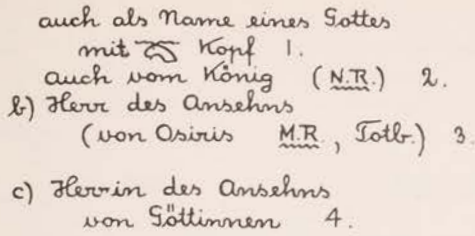 auch als Name eines Gottes
mit Kopf 1.
auch vom König (N.R.) 2.
b) Herr des Ansehns
(von Osiris M.R., Totb.) 3.
c) Herrin des Ansehns
von Göttinnen 4.